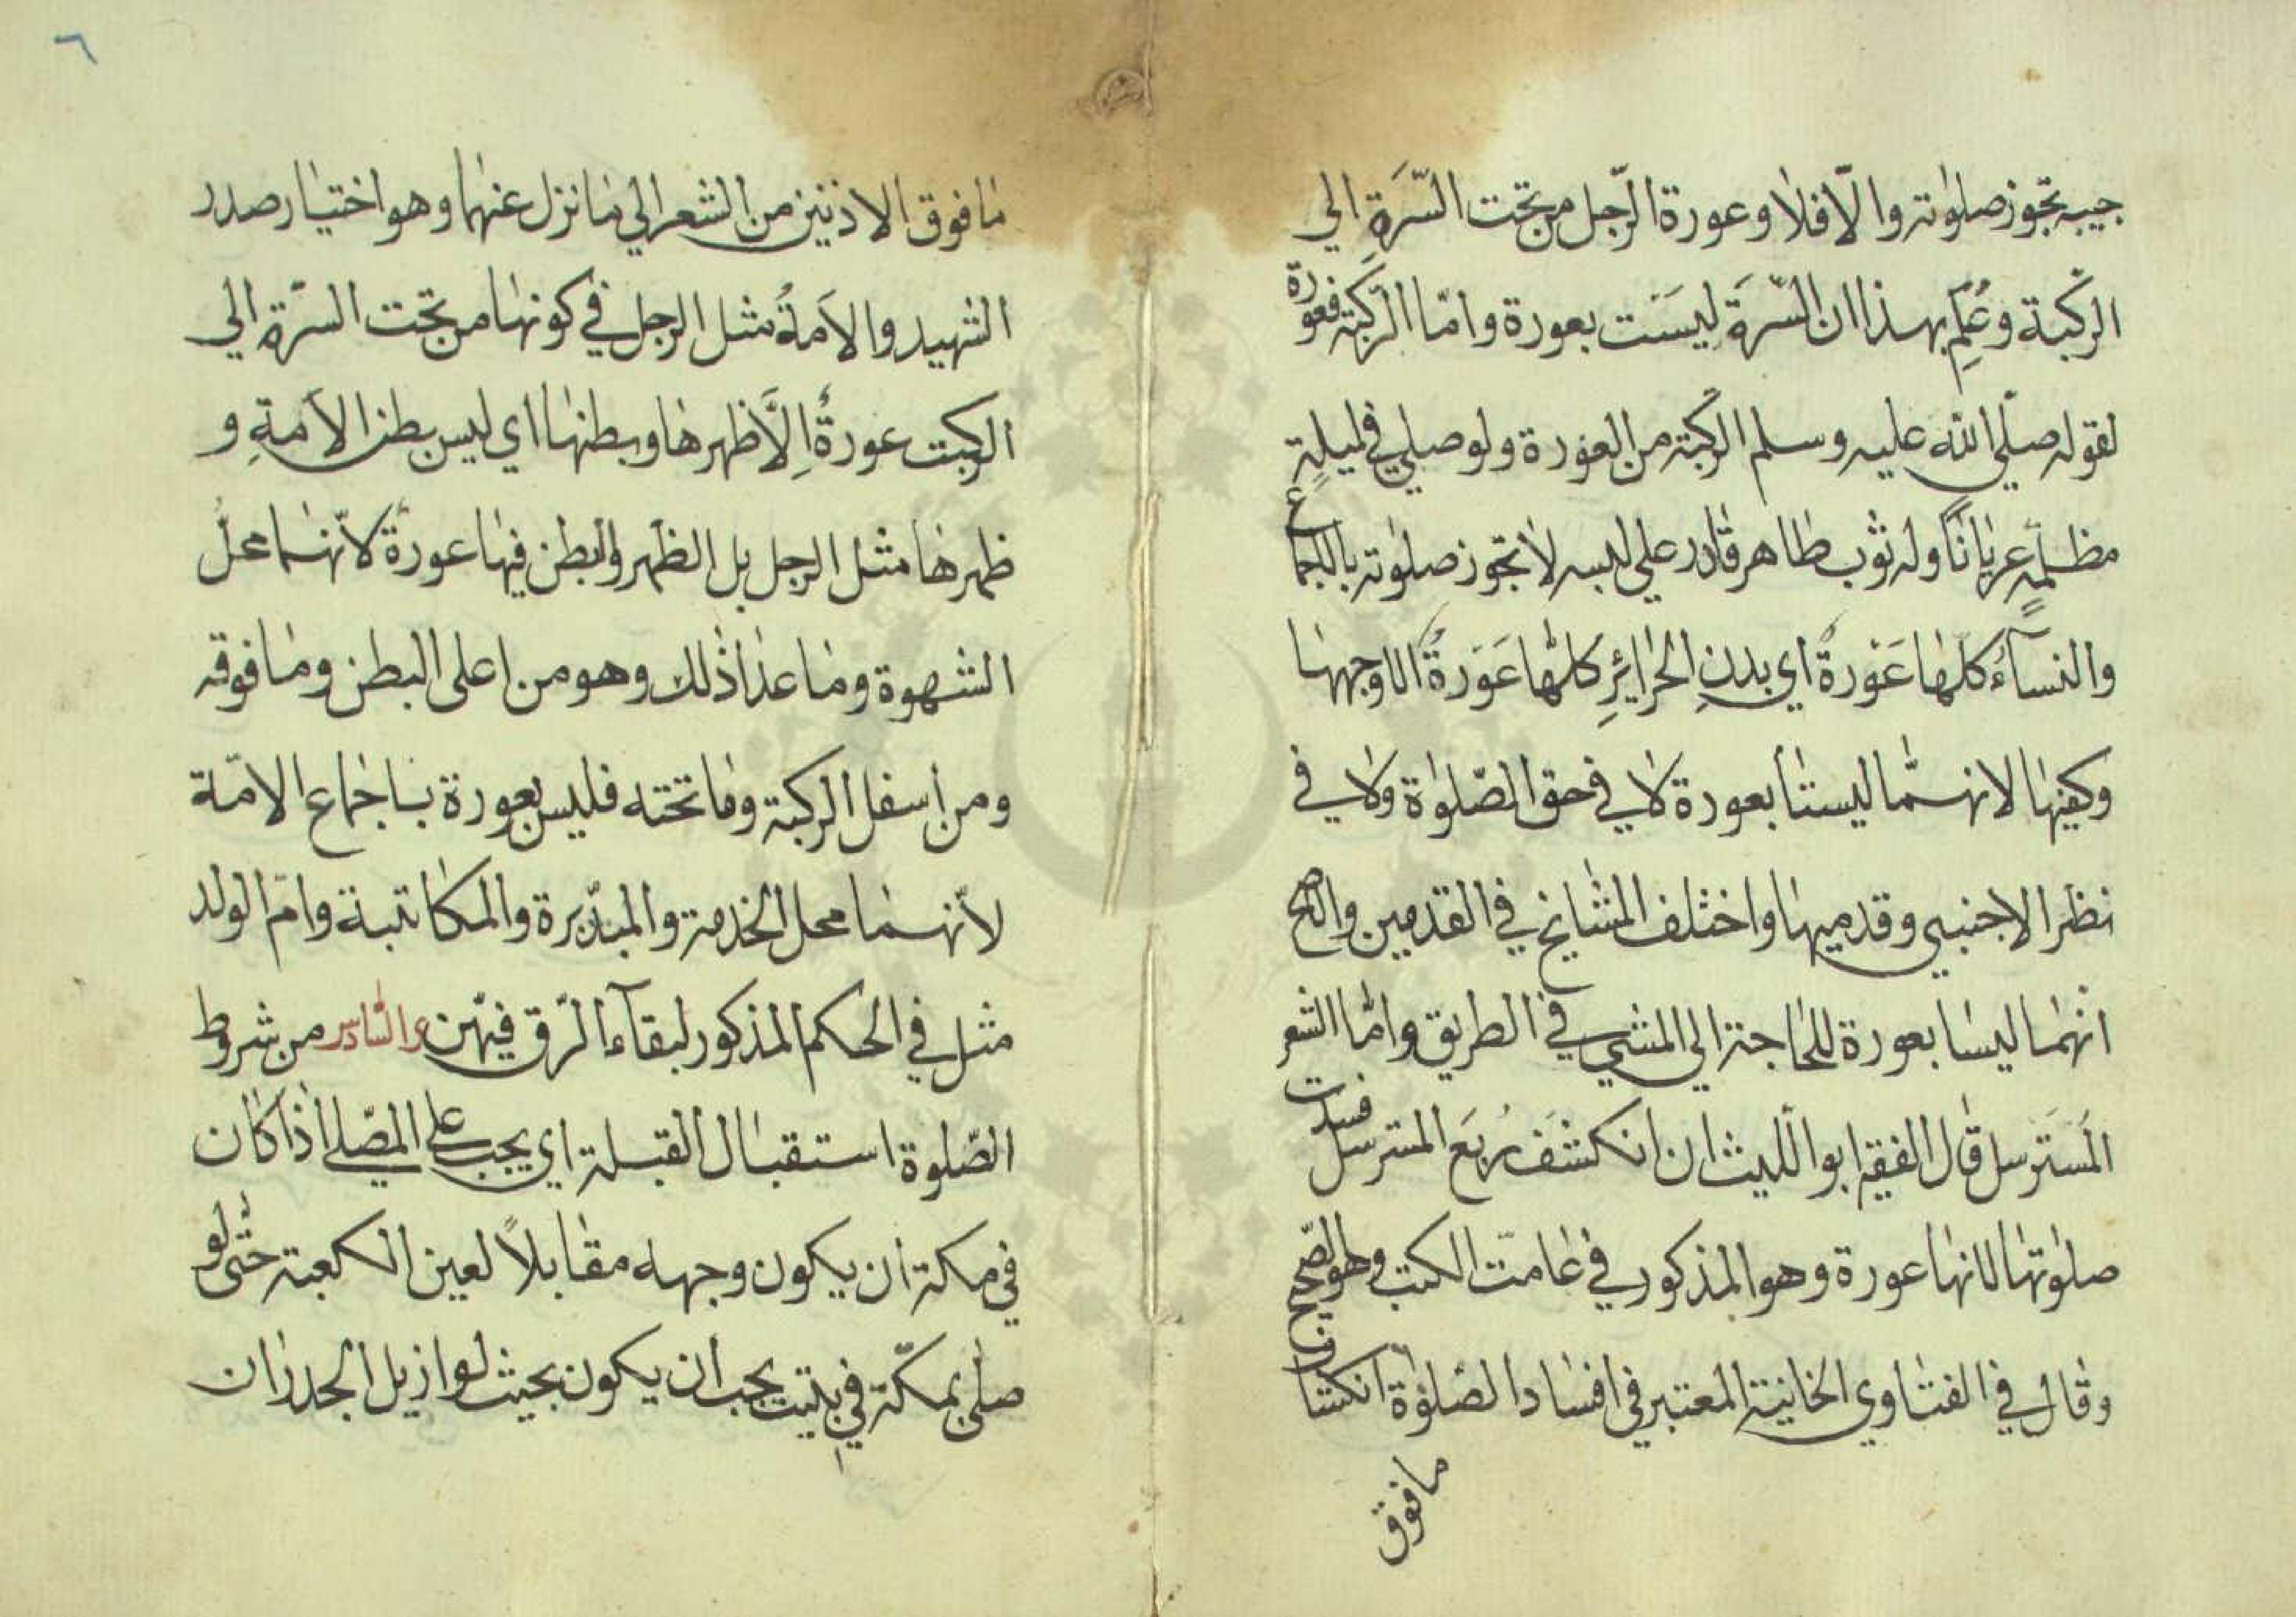 جيبه تجوز صلوٰته والّا فلا وعورة الرّجل من تحت السّرَةِ الي
الركبة وعُلِمَ بهذا ان السّرَةَ ليسَت بعورة وامّا الرّكبة فعورة
لقوله صلّي الله عليه وسلم الرُكبة من العورة ولو صلي في ليلةٍ
مظلمةٍ عريانًا وله ثوب طاهر قادر علي لبسه لا تجوز صلوٰته بالاجماع
والنسآءُ كلها عَوْرةٌ اي بدنِ الحرايُرِ كلّها عَوَرةٌ الا وجهها
وكفيها لانهمّا ليستا بعورة لا في حق الصّلوٰة ولا في
نظر الاجنبي وقدميها واختلف المشايخ في القدمين والاصح
انّهما ليسا بعورة للحاجة الي المشي في الطريق وامّا الشعر
المَستَرسل قال الفقيه ابوا اللّيث ان انكشَف رُبعَ المسترسل فسدت
صلوٰتها لانها عورة وهو المذكور في عامّت الكتب وهو الصّحيح
وقال في الفتاوي الخانية المعتبر في افساد الصّلوٰة انكشاف
ما فوق
٦
ما فوق الاذنين من الشعر الي ما نزل عنهما وهو اختيار صدر
الشهيد والاَمةُ مثل الرجل في كونها من تحت السرّة الي
الركبت عورةٌ اِلاَّ ظهرها وبطنها اي ليس بطن الاَمةِ و
ظهرها مثل الرجل بل الظهر والبطن فيها عورةٌ لاَنّهما محلّ
الشهوة وما عدا ذلك وهو من اعلى البطن وما فوقه
ومن أسفل الركبة وما تحته فليس بعورة باجماع الامّة
لاَنّهما محل الخدمة والمبدّبرة والمكاتبة وامّ الولد
مثل في الحكم المذكور لبقآء الرّق فيهّن والسّادس من شروط
الصّلوة استقبال القبلة اي يجب علي المصّلي اذا كان
في مكة أن يكون وجهه مقابلاً لعين الكعبة حتّى لو
صلّي بمكّة في بيت يجب ان يكون بحيث لو ازيل الجدران